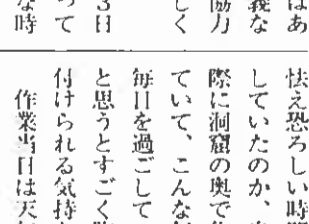 はあ
義な
協力
しく
3日
って
な時
怯え恐ろしい時期
していたのか、
際に洞窟の奥で
ていて、こんな
毎日を過ごして
と思うとすごく
付けられる気持
作業当日は天